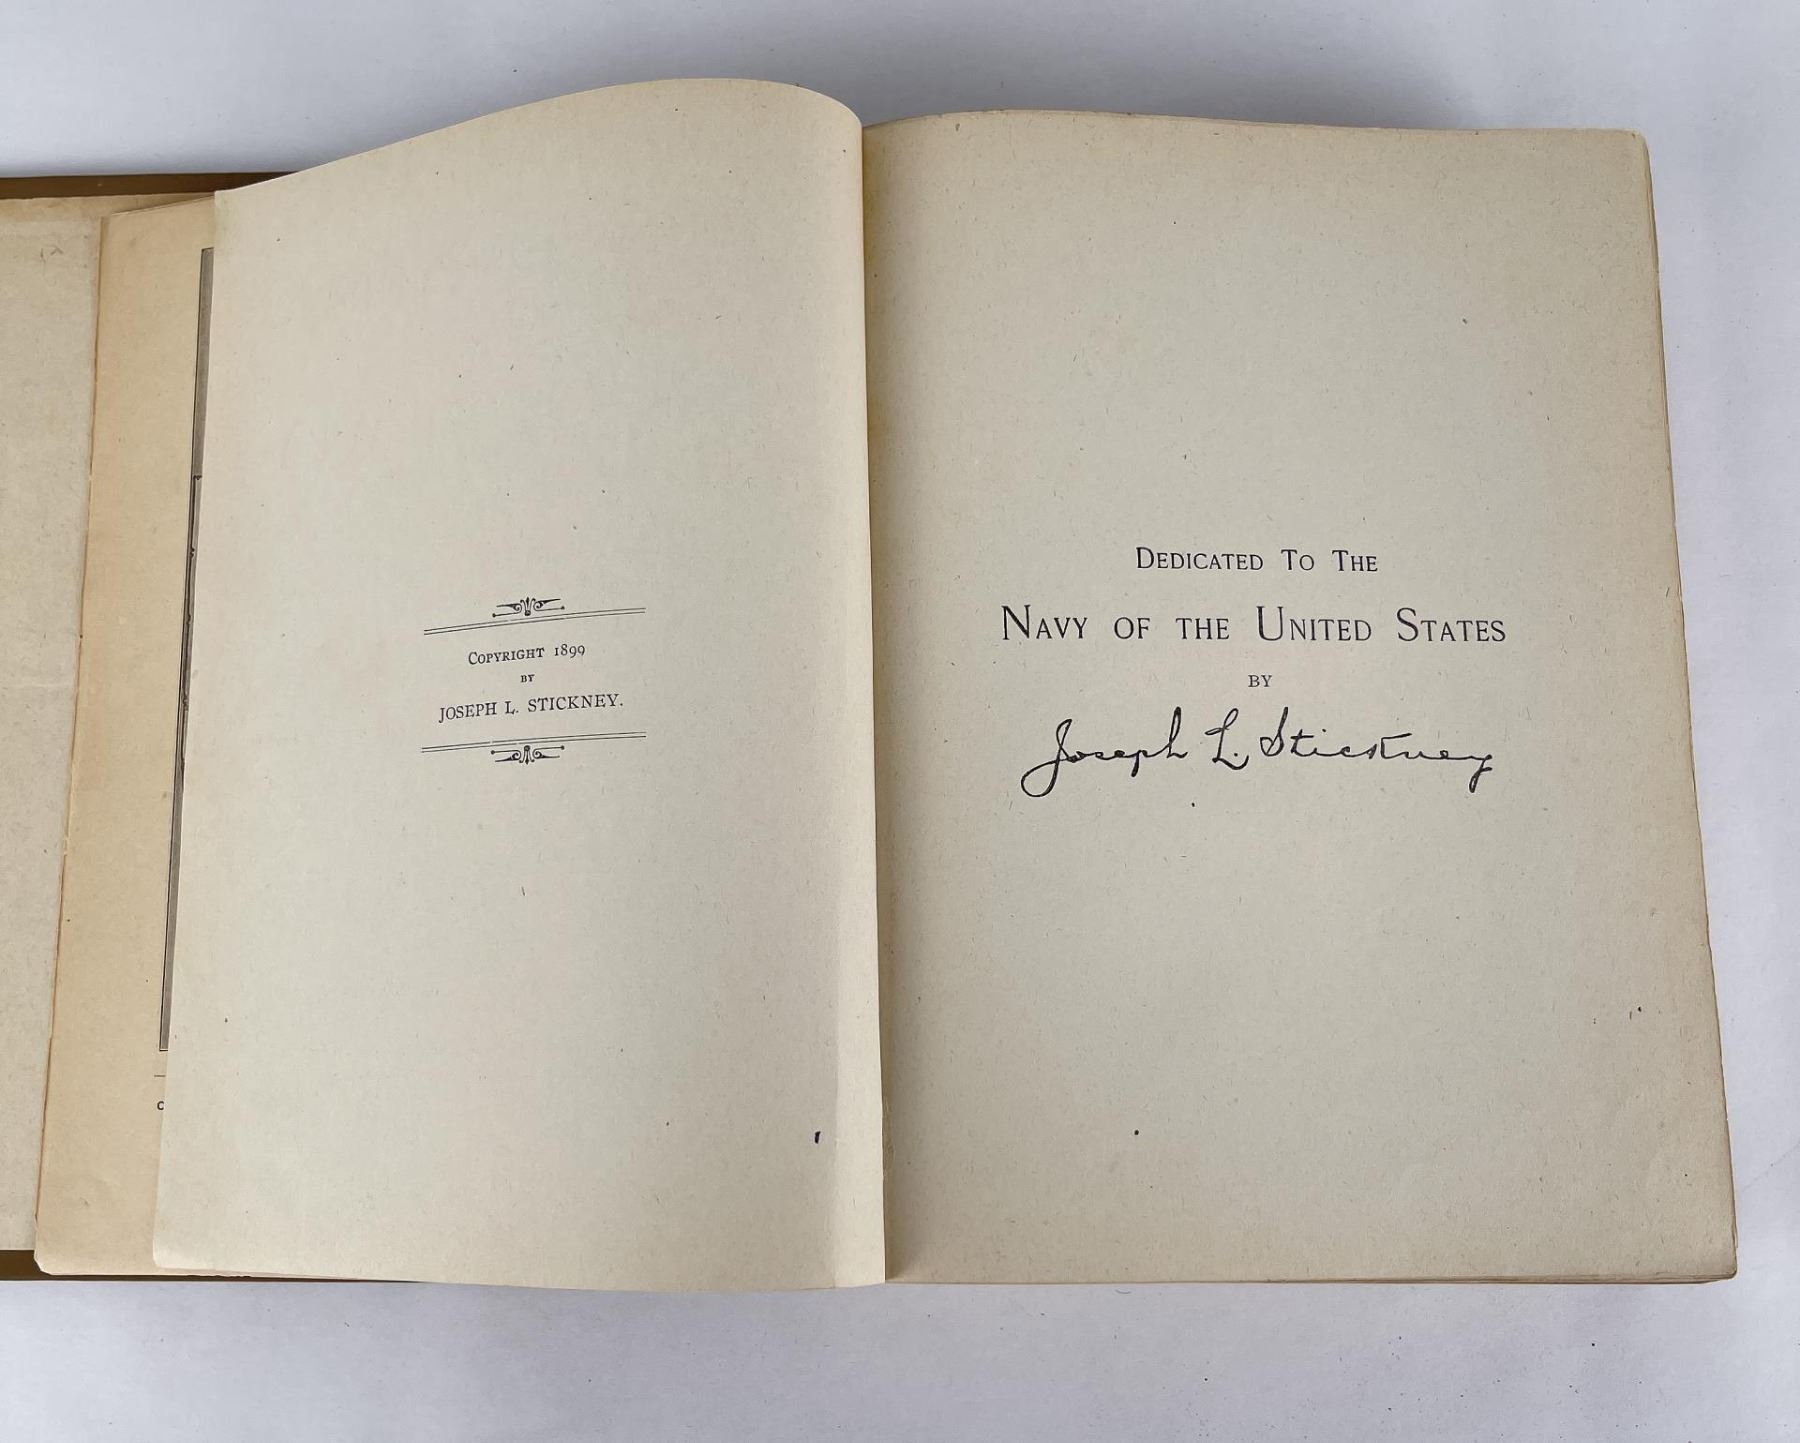 COPYRIGHT 1899
BY
JOSEPH L. STICKNEY.
DEDICATED TO THE
NAVY OF THE UNITED STATES
BY
Joseph L. Stickney